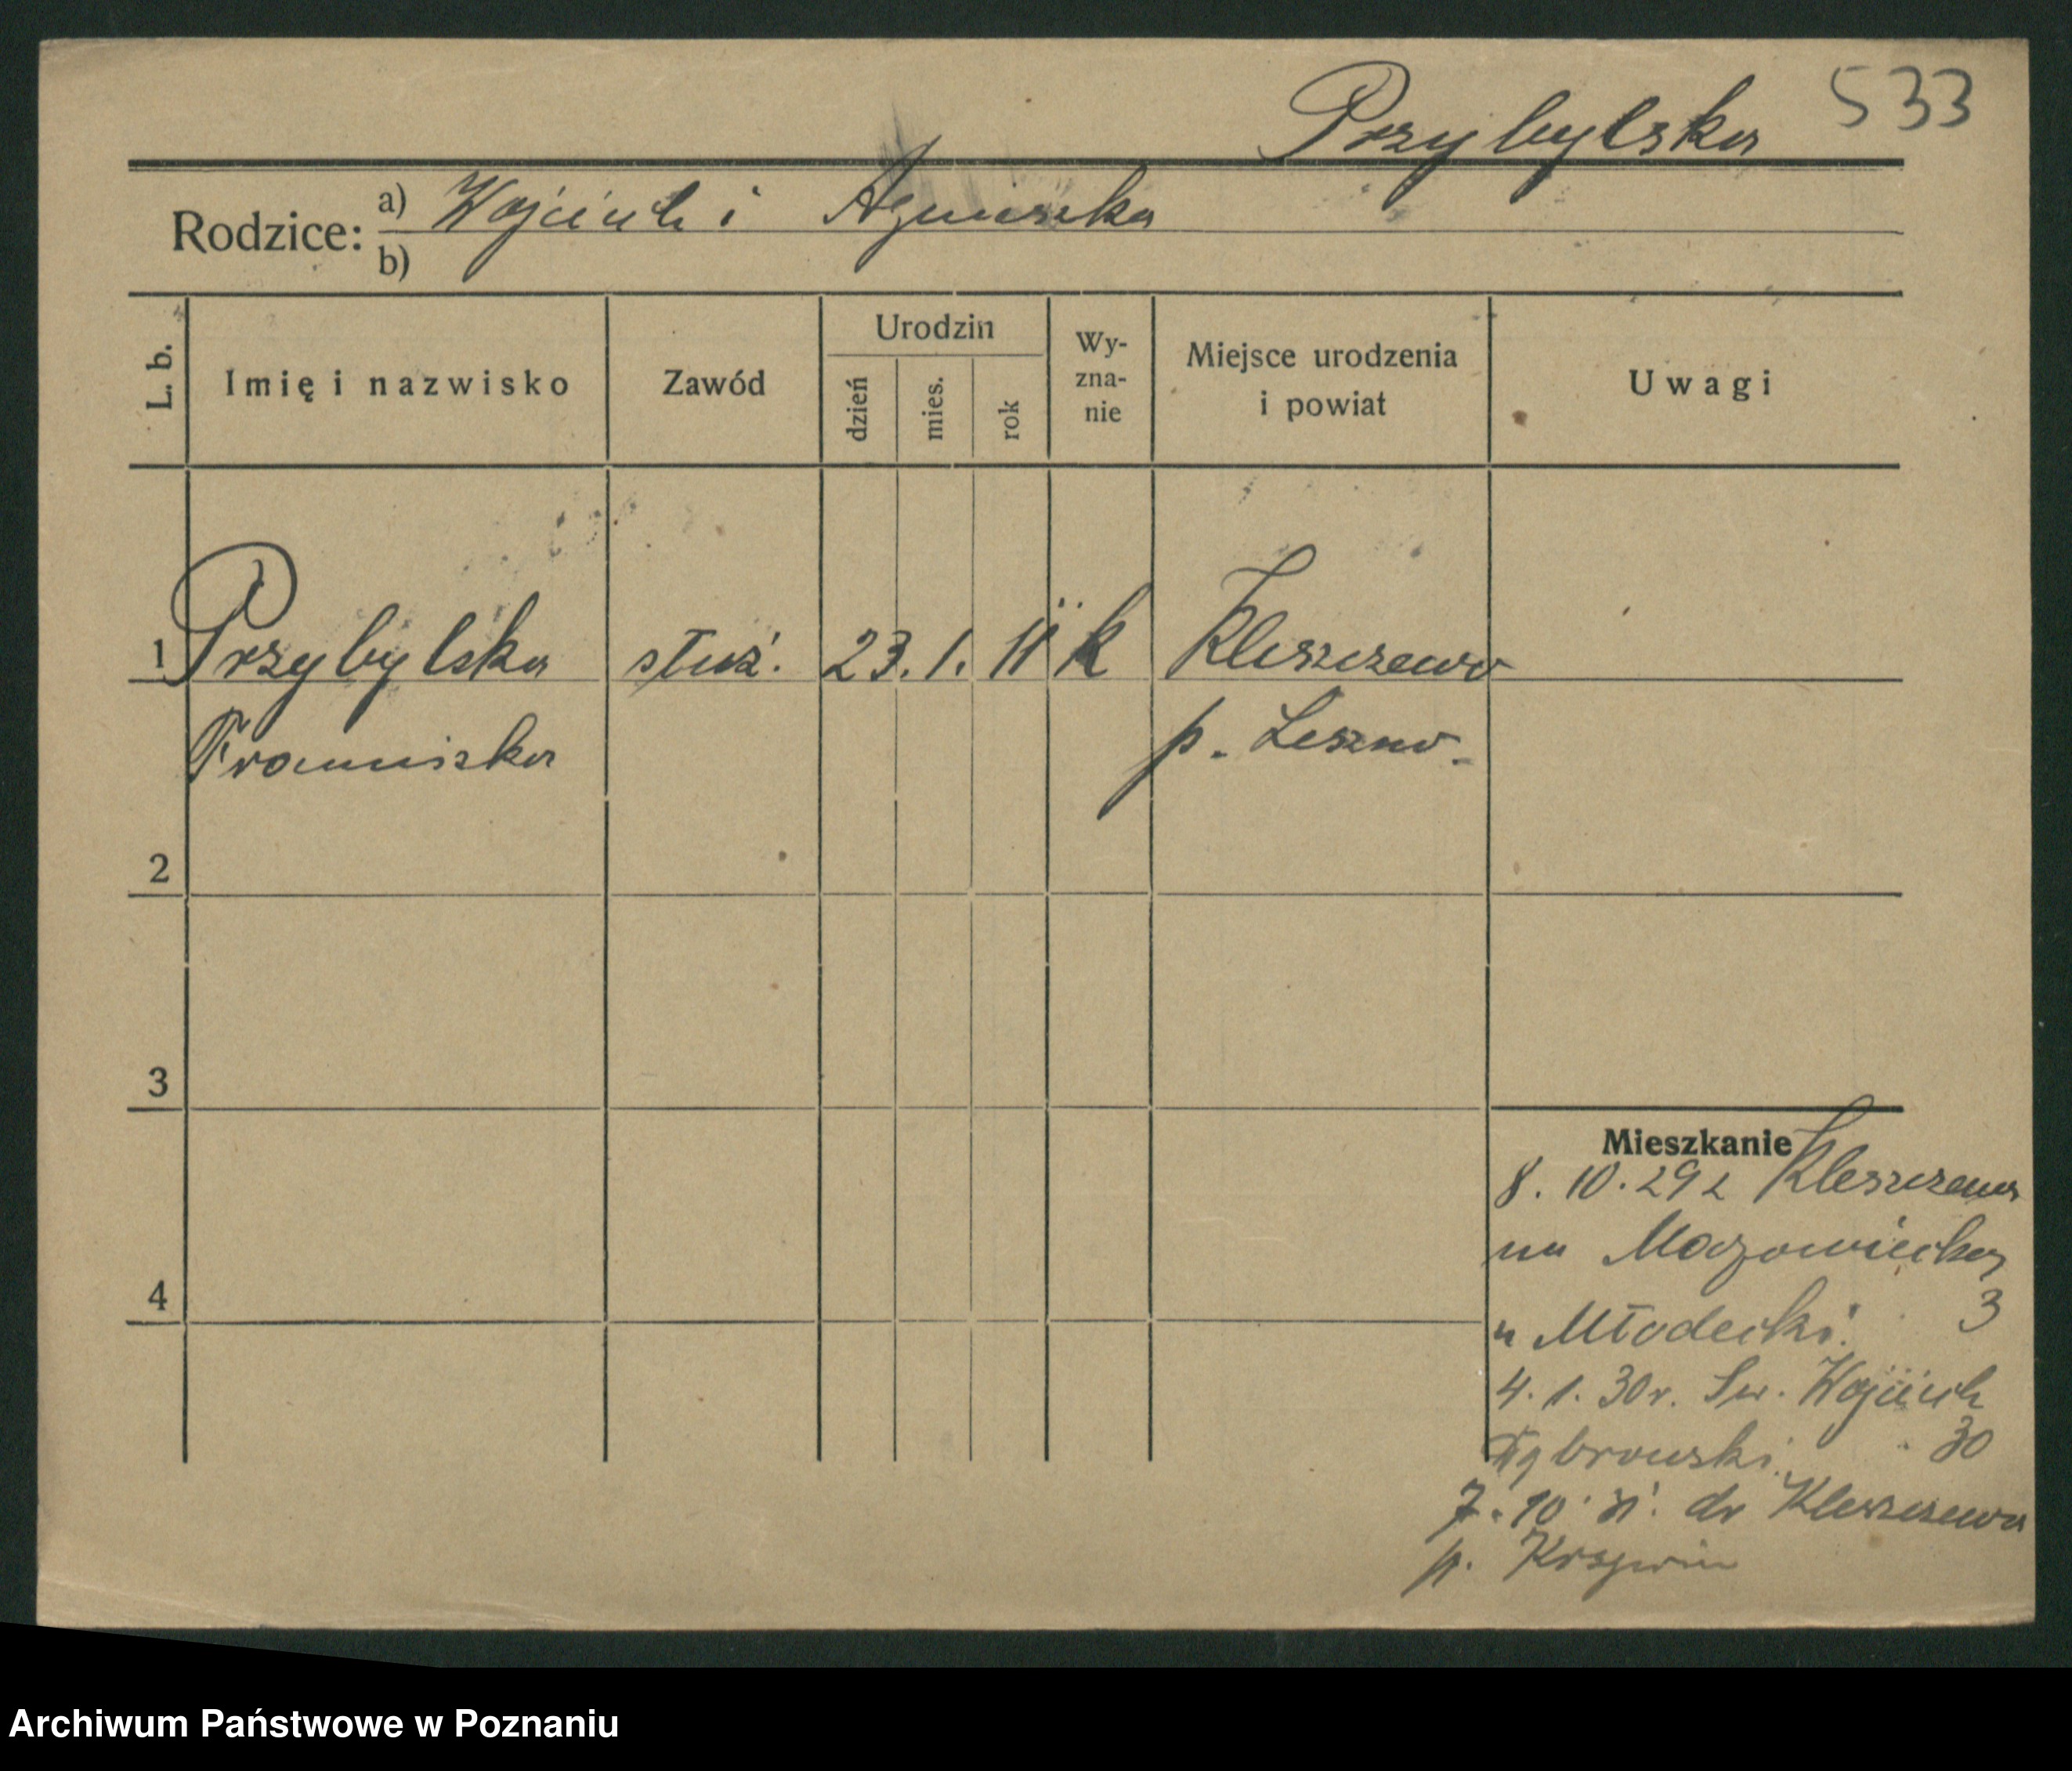 533
Przybylska
Rodzice: a) Wojciech i Agnieszka
b)
L. b. Imię i nazwisko Zawód Urodzin dzień mies. rok Wy-zna-nie Miejsce urodzenia i powiat Uwagi
1 Przybylska służ. 23. 1. 11 k Kleszczewo
Franciszka p. Leszno
2
3
4
Mieszkanie
8. 10. 29 z Kleszczewa
na Mazowiecką
3
u Młodecki.
4. 1. 30 r. Św. Wojciech
30
Dąbrowski.
7. 10. 31. do Kleszczewa
p. Krzywin
Archiwum Państwowe w Poznaniu